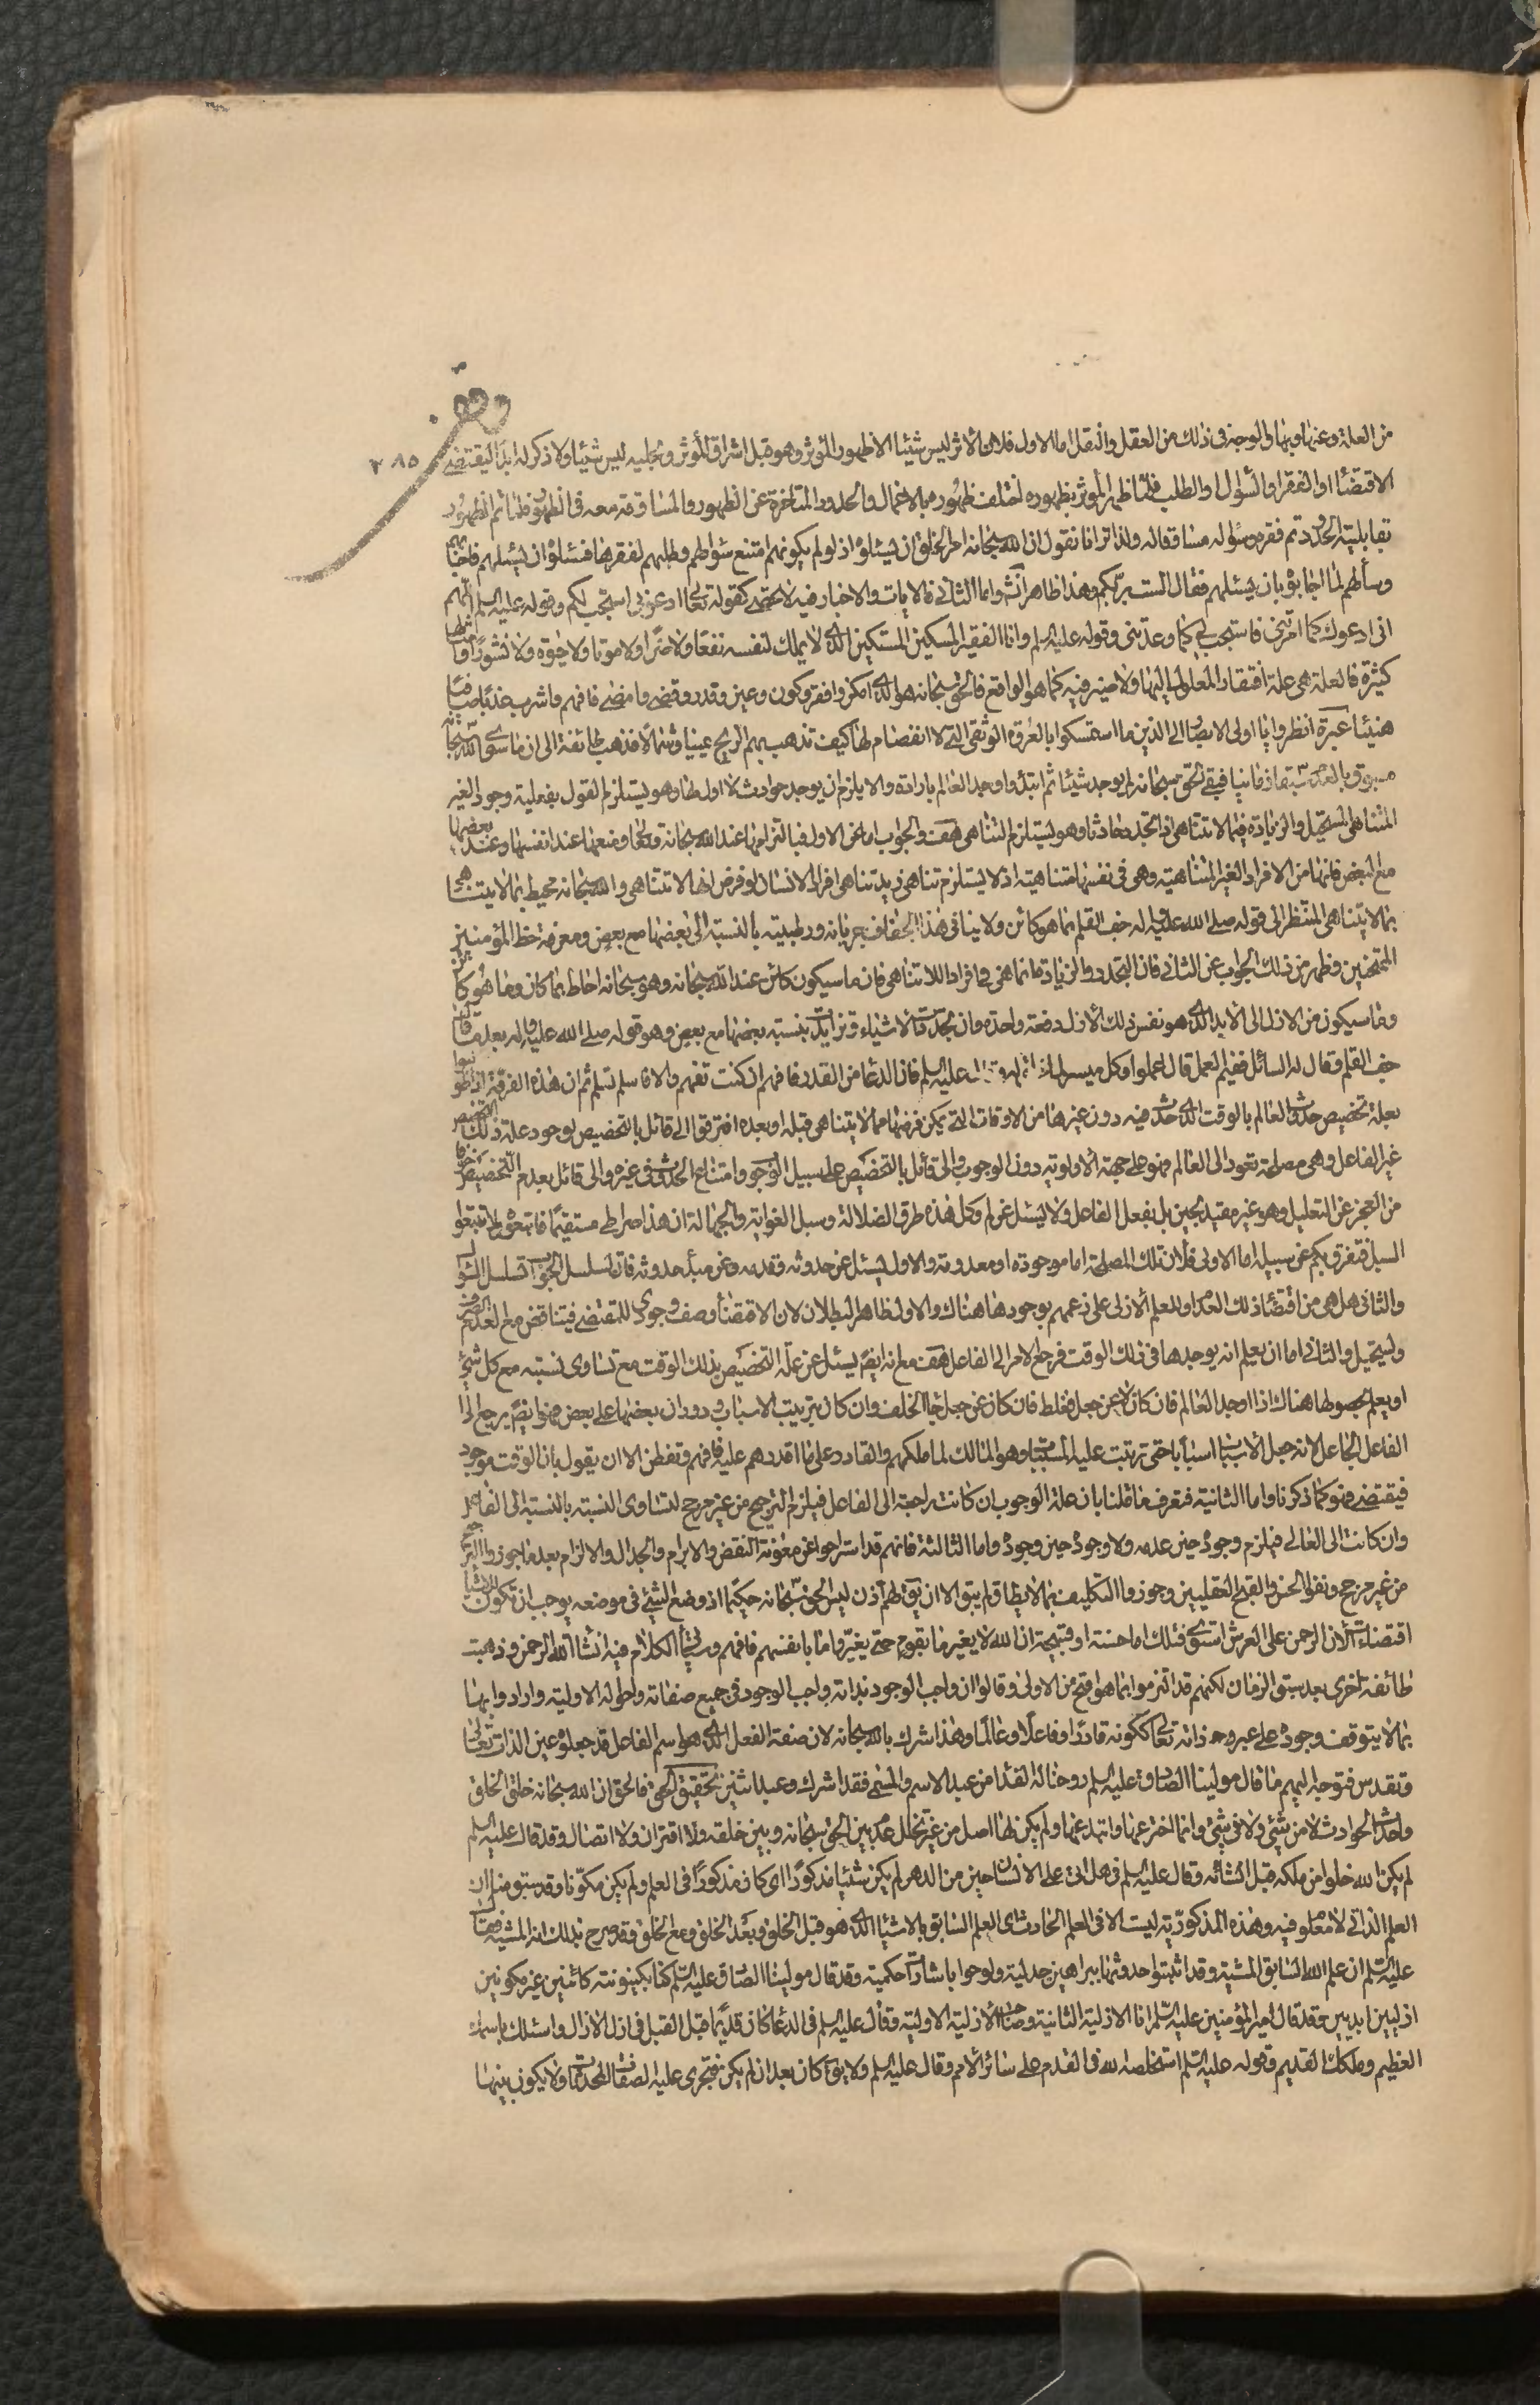 وقف
٢٨٥
من العلة وعنها وبها والوجه في ذلك من العقل والنقل اما الاول فلان الأثر ليس شيئا الا ظهور المؤثر وهو قبل اشراق المؤثر وتجليه ليس شيئا ولا ذكر له ابدا ليقتضي
الاقتضاء او الفقر او السؤال والطلب فلما ظهر المؤثر بظهوره اختلف ظهوره بالاجمال والحدود المتاخرة عن الظهور والمساوقة معه في الظهور فلما تم الظهور
بقابلية الحدود تم فقره وسؤاله مساوقا له ولذا ترانا نقول ان الله سبحانه امر الخلق ان يسئلوه اذ لو لم يكونهم امتنع سؤالهم وطلبهم لفقرهما فسئلوه ان يسئلهم فاجابهم
وسألهم لما اجابوه بان يسئلهم فقال الست بربكم وهذا ظاهر انش واما الثاني فالايات والاخبار فيه لا تحصى كقوله تعالى ادعوني استجب لكم وقوله عليه السلم اللهم
اني ادعوك كما امرتني فاستجب لي كما وعدتني وقوله عليه السلم وانا الفقير المسكين المستكين الذي لا يملك لنفسه نفعا ولا ضرا ولا موتا ولا حيوة ولا نشورا وامثالها
كثيرة فالعلة هي علة افتقار المعلول اليها ولا ضير فيه كما هو الواقع فالحق سبحانه هو الذي امكن وافقر وكون وعين وقدر وقضى وامضى فافهم واشرب عذبا صافيا
هنيئا عبرة انظروا يا اولي الابصار الى الذين ما استمسكوا بالعروة الوثقى التي لا انفصام لها كيف تذهب بهم الريح يمينا وشمالا فذهب طائفة الى ان ما سوى الله سبحانه
مسبوق بالعدم سبقا زمانيا فبقي الحق سبحانه لم يوجد شيئا ثم ابتدء واوجد العالم بارادة والا يلزم ان يوجد حوادث لا اول لها وهو يستلزم القول بفعلية وجود الغير
المتناهي المستحيل والزيادة فيما لا تتناهى اذا تجدد حادثا وهو يستلزم التناهي هف والجواب اما عن الاول فبالتزامها عند الله سبحانه وتعالى ومنعها عند انفسها وعند بعضها
مع البعض فانها من الافراد الغير المتناهية وهي في نفسها متناهية اذ لا يستلزم تناهي زيد تناهي افراد الانسان لو فرض انها لا تتناهى والله سبحانه محيط بما لا يتناهى
بما لا يتناهى الم تنظر الى قوله صلى الله عليه واله جف القلم بما هو كائن ولا ينافي هذا الجفاف جريانه ورطبيته بالنسبة الى بعضها مع بعض ومعرفة حظ المؤمنين
الممتحنين فظهر من ذلك الجواب عن الثاني فان التجدد والزيادة انما هي في افراد اللاتناهي فان ما سيكون كائن عند الله سبحانه وهو سبحانه احاط بما كان وما هو كائن
وما سيكون من الازل الى الابد الذي هو نفس ذلك الازل دفعة واحدة وان تجددت الاشياء وتزايدت بنسبة بعضها مع بعض وهو قوله صلى الله عليه واله بعد ما قال
جف القلم وقال له السائل ففيم العمل قال اعملوا وكل ميسر لما عليه السلم فان الدعا من القدر فافهم ان كنت تفهم والا فاسلم تسلم ثم ان هذه الفرقة
بعلة تخصيص حدوث العالم بالوقت الذي حدث فيه دون غيرها من الاوقات التي يمكن فرضها مما لا يتناهى قبله او بعده افترقوا الى قائل بالتخصيص لوجود علة ذلك التخصيص
غير الفاعل وهي مصلحة تعود الى العالم فهو على جهة الاولوية دون الوجوب والى قائل بالتخصيص على سبيل الوجوب وامتناع الحدوث في غيره والى قائل بعدم التخصيص خوفا
من العجز عن التعليل وهو غير مقيد بحين بل بفعل الفاعل ولا يسئل عن لم وكل هذه طرق الضلالة وسبل الغواية والجهالة ان هذا صراطي مستقيما فاتبعوه ولا تتبعوا
السبل فتفرق بكم عن سبيله اما الاولى فلان تلك المصلحة اما موجودة او معدومة والاول يسئل عن حدوثه وقدمه وعن مبدأ حدوثه فان تسلسل الجواب تسلسل السؤال
والثاني هل هي من اقتضاء ذلك العدم او للعلم الازلي على زعمهم بوجودها هناك والاول ظاهر البطلان لان الاقتضاء وصف وجودي للمقتضي فيتناقض مع العدم
ويستحيل والثاني اما ان يعلم انه يوجدها في ذلك الوقت فرجع الامر الى الفاعل هف مع انه ايضا يسئل عن علة التخصيص بذلك الوقت مع تساوي نسبته مع كل شيء
او يعلم بحصولها هناك اذا اوجد العالم فان كان لا عن جعل فغلط فان كان عن جعل جاء الخلف وان كان بترتيب الاسباب ودوران بعضها على بعض فهو ايضا يرجع الى
الفاعل الجاعل لانه جعل الاسباب اسبابا حتى ترتبت عليها المسببات وهو المالك لما ملكهم والقادر على ما اقدرهم عليه فافهم وتفطن الا ان يقول بان الوقت موجود
فيقتضي فهو كما ذكرنا واما الثانية فتعرف مما قلنا بان علة الوجوب ان كانت راجعة الى الفاعل فيلزم الترجيح من غير مرجح لتساوي النسبة بالنسبة الى الفاعل
وان كانت الى العالم فيلزم وجوده حين عدمه ولا وجوده حين وجوده واما الثالثة فانهم قد استراحوا عن مؤنة النقض والابرام والجدال والالزام بعد ما جوزوا الترجيح
من غير مرجح ونفوا الحسن والقبح العقليين وجوزوا التكليف بما لا يطاق ولم يبق الا ان يق لهم اذن ليس الحق سبحانه حكيما اذ وضع الشيء في موضعه يوجب ان تكون للاشياء
اقتضاءات الان الرحمن على العرش استوى فتلك اما حسنة او قبيحة ان الله لا يغير ما بقوم حتى يغيروا ما بانفسهم فافهم وسيأتي الكلام فيه انشاء الله الرحمن وذهبت
طائفة اخرى بعد سبق الزمان لكنهم قد التزموا بما هو اقبح من الاولى وقالوا ان واجب الوجود بذاته واجب الوجود في جميع صفاته واحواله الاولية وارادوا بها
بما لا يتوقف وجوده على غيره ذاته تعالى ككونه قادرا وفاعلا وعالما وهذا شرك بالله سبحانه لان صفة الفعل الذي هو اسم الفاعل قد جعلوه عين الذات تعالى
وتقدس فتوجه اليهم ما قال مولينا الصادق عليه السلم روحنا له الفداء من عبد الاسم والمسمى فقد اشرك وعبد اثنين تحقيق الحق فالحق ان الله سبحانه خلق الخلق
واحدث الحوادث لا من شيء ولا في شيء وانما اخترعها وابتدعها ولم يكن لها اصل من غير تخلل عدم بين الحق سبحانه وبين خلقه ولا اقتران ولا اتصال وقد قال عليه السلم
لم يكن الله خلوا من ملكه قبل انشائه وقال عليه السلم في هل اتى على الانسان حين من الدهر لم يكن شيئا مذكورا اي كان مذكورا في العلم ولم يكن مكونا وقد سبق منا ان
العلم الذاتي لا معلوم فيه وهذه المذكورية ليست الا في العلم الحادث اي العلم السابق بالاشياء الذي هو قبل الخلق وبعد الخلق ومع الخلق وقد صرح بذلك انه المشية فقال
عليه السلم ان علم الله السابق المشية وقد اثبتوا حدوثها ببراهين جدلية ولوحوا باشارات حكمية وقد قال مولينا الصادق عليه السلم كنا بكينونته كائنين غير مكونين
ازليين ابديين وقد قال امير المؤمنين عليه السلم انا الازلية الثانية وصاحب الازلية الاولية وقال عليه السلم في الدعا كان قديما قبل القبل في ازل الازال واسئلك باسمك
العظيم وملكك القديم وقوله عليه السلم استخلصه لله في القدم على سائر الامم وقال عليه السلم ولا يق كان بعد ان لم يكن فتجري عليه الصفات المحدثات ولا يكون بينها